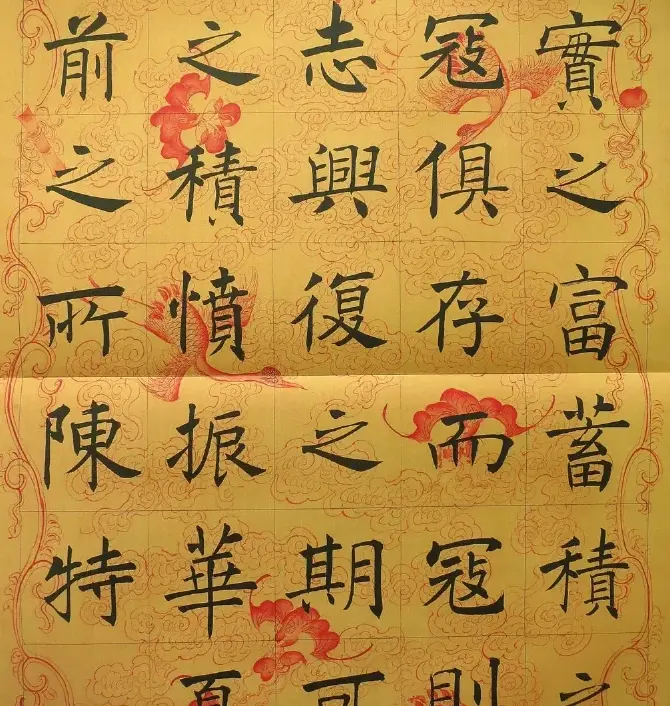 實之富蓄積之
冦俱存而冦則
志興復之期可
之積憤振華夏
前之所陳特